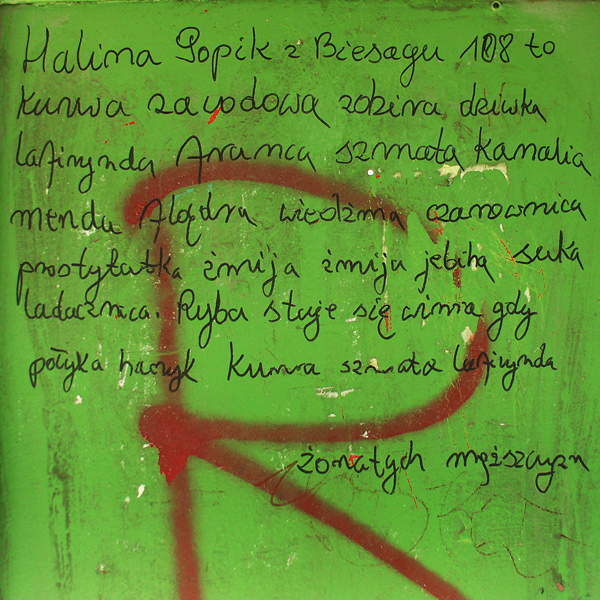 Halina Popik z Biesagu 108 to
kurwa zawodowa zdzira dziwka
lafirynda franca szmata kanalia
menda flądra wiedźma czarownica
prostytutka żmija żmija jebiha suka
ladacznica. Ryba staje się winna gdy
połyka haczyk kurwa szmata lafirynda
żonatych męższczyzn
R